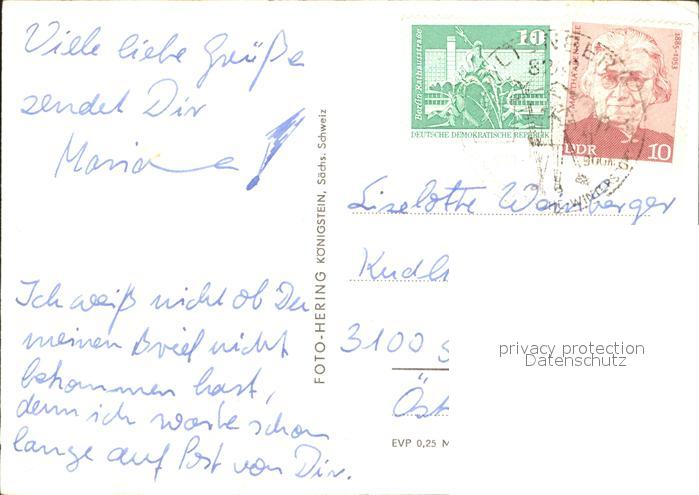 Viele liebe Grüße
sendet Dir
Ich weiß nicht ob Du
meinen Brief nicht
bekommen hast,
denn ich warte schon
lange auf Post von Dir.
FOTO-HERING KÖNIGSTEIN, Sächs. Schweiz
Berlin, Rathausstraße
10
DEUTSCHE DEMOKRATISCHE REPUBLIK
1885-1053
DDR 10
Liselotte
3100
EVP 0,25 M
privacy protection
Datenschutz